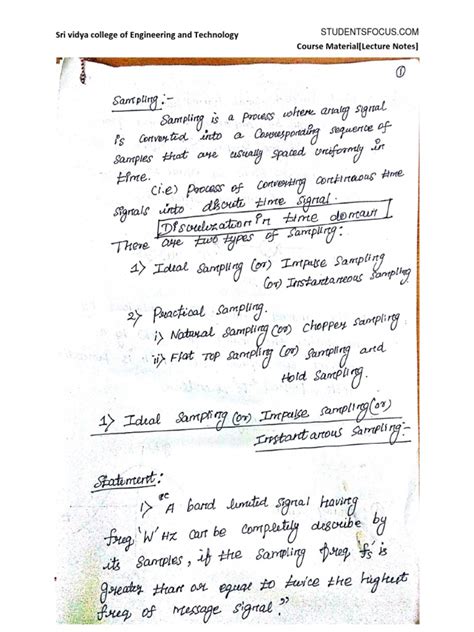 Sri vidya college of Engineering and Technology
STUDENTSFOCUS.COM
Course Material[Lecture Notes]
①
Sampling:-
Sampling is a Process where analog signal
is converted into a Corresponding sequence of
samples that are usually spaced uniformly in
time.
(i.e) Process of converting continuous time
signals into discrete time signal.
Discretization in time domain
There are two types of Sampling:
1) Ideal Sampling (or) Impulse Sampling
(or) Instantaneous Sampling
2) Practical Sampling.
i) Natural Sampling (or) Chopper Sampling
ii) Flat Top Sampling (or) Sampling and
Hold Sampling.
1) Ideal Sampling (or) Impulse Sampling (or)
Instantanous Sampling:-
Statement:
1) "A band limited signal having
freq 'W' Hz can be completely describe by
its samples, if the Sampling freq 'fs' is
greater than or equal to twice the highest
freq of message signal."